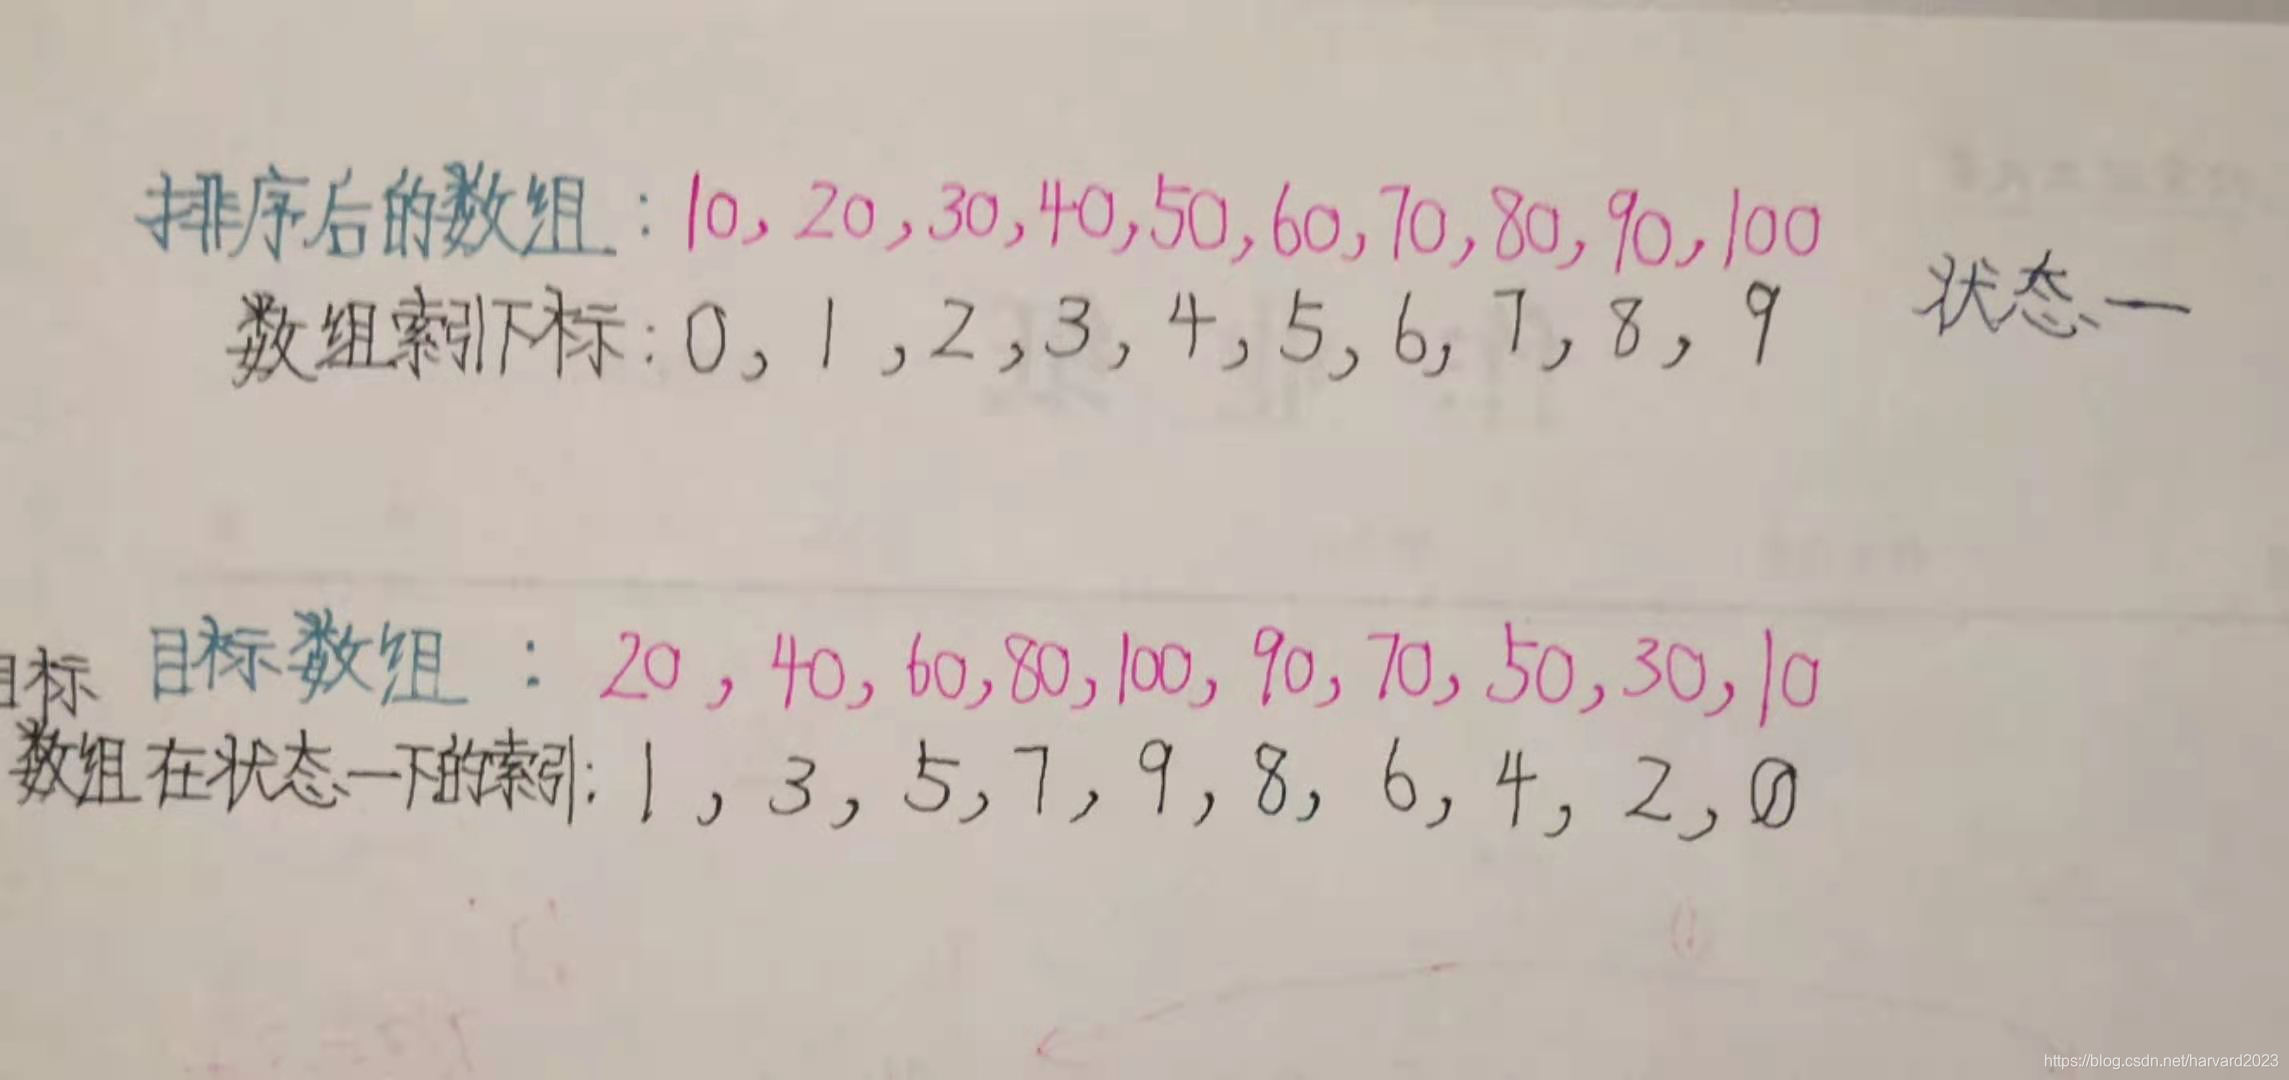 排序后的数组：10，20，30，40，50，60，70，80，90，100
数组索引下标：0，1，2，3，4，5，6，7，8，9 状态一
目标数组：20，40，60，80，100，90，70，50，30，10
目标
数组在状态一下的索引：1，3，5，7，9，8，6，4，2，0
https://blog.csdn.net/harvard2023